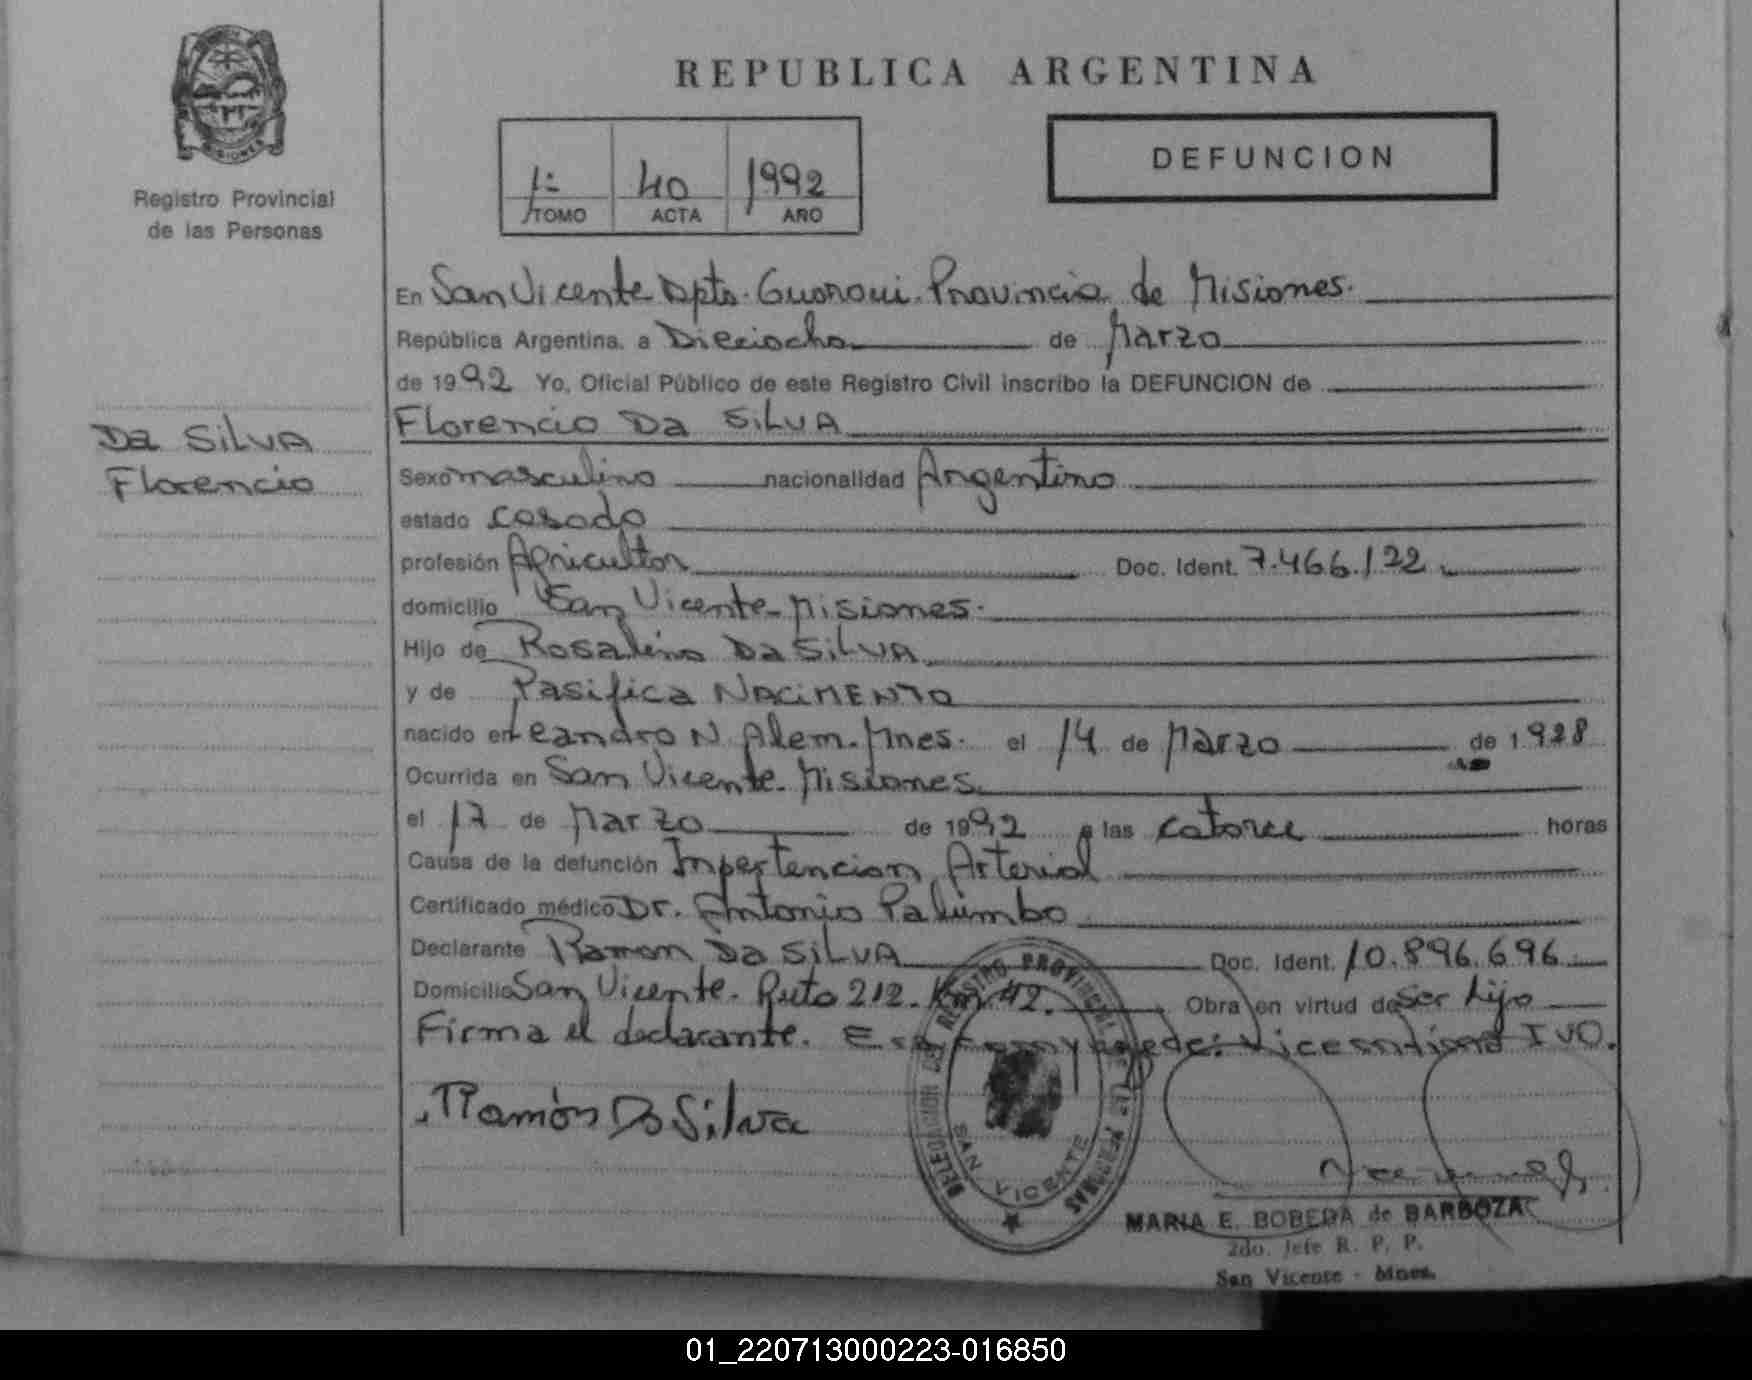 REPUBLICA ARGENTINA
DEFUNCION
1º 40 1992
TOMO ACTA AÑO
MISIONES
Registro Provincial
de las Personas
En San Vicente Dpto. Guarani. Provincia de Misiones.
República Argentina, a Dieciocho de Marzo
de 1992 Yo, Oficial Público de este Registro Civil inscribo la DEFUNCION de
Florencio Da SiLVA
Da SiLVA
Florencio
Sexo masculino nacionalidad Argentino
estado casado
profesión Agricultor Doc. Ident. 7.466.122
domicilio San Vicente-Misiones.
Hijo de Rosalino Da SiLVA
y de Pasifica NACiMENTO
nacido en Leandro N. Alem. Mnes. el 14 de Marzo de 1928
Ocurrida en San Vicente-Misiones.
el 17 de Marzo de 1992 a las catorce horas
Causa de la defunción Impertencion Arterial
Certificado médico Dr. Antonio Palumbo
Declarante Ramon Da SiLVA Doc. Ident. 10.896.696
Domicilio San Vicente. Ruta 212. Km. 42. Obra en virtud de Ser hijo
Firma el declarante. Era conyuge de: IVO.
Ramón Da Silva
DELEGACION DEL REGISTRO PROVINCIAL DE LAS PERSONAS
SAN VICENTE
MARIA E. BOBEDA de BARBOZA
2do. Jefe R. P. P.
San Vicente - Mnes.
01_220713000223-016850